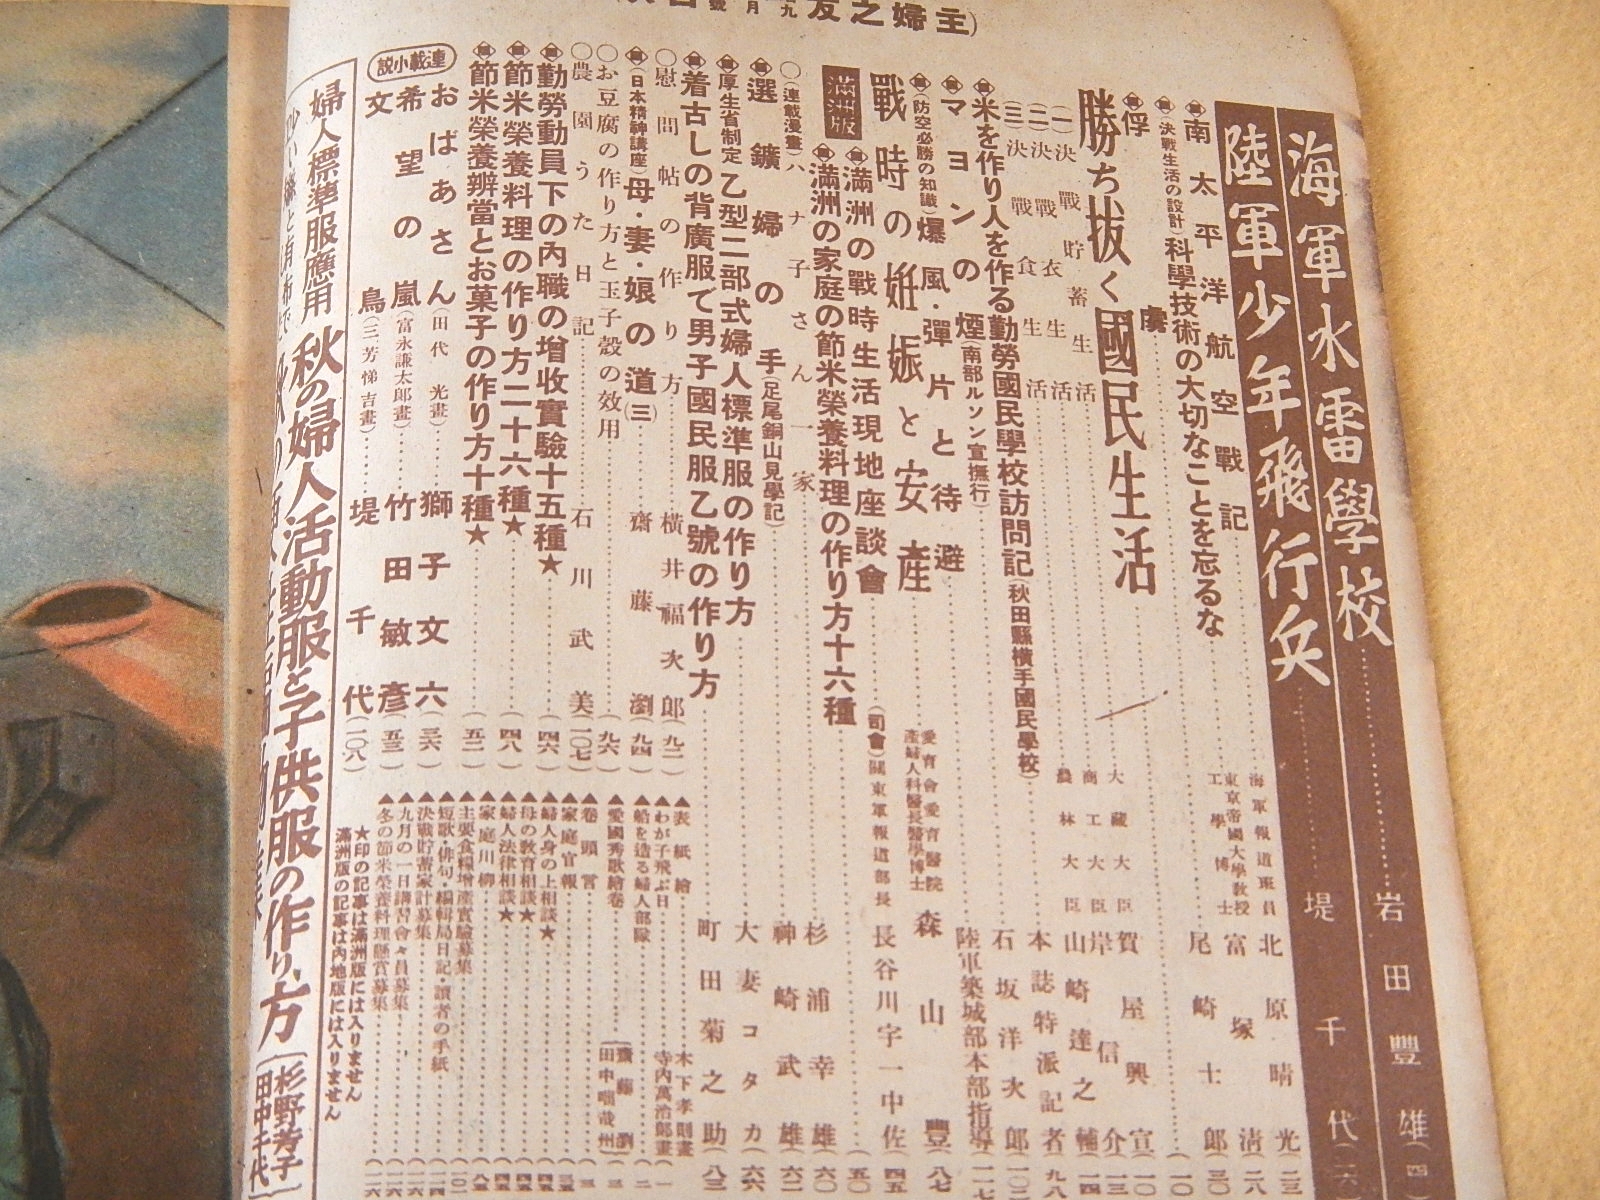 主婦之友
海軍水雷學校 岩田豐雄
陸軍少年飛行兵 堤千代
南太平洋航空戰記 海軍報道班員 北原晴光
俘虜
(決戰生活の設計)科學技術の大切なことを忘るな 東京帝國大學教授 工學博士 富塚清
尾崎士郎(三〇
勝ち拔く國民生活
(一)決戰貯蓄生活 大藏大臣 賀屋興宣
(二)決戰衣生活 商工大臣 岸信介
(三)決戰食生活 農林大臣 山崎達之輔
米を作り人を作る勤勞國民學校訪問記(秋田縣橫手國民學校) 本誌特派記者
マヨンの煙(南部ルソン宣撫行) 石坂洋次郎
(防空必勝の知識)爆風・彈片と待避 陸軍築城部本部指導
戰時の姙娠と安產 愛育會愛育醫院產婦人科醫長醫學博士 森山豐
滿洲版
滿洲の戰時生活現地座談會 (司會)關東軍報道部長 長谷川宇一中佐
滿洲の家庭の節米榮養料理の作り方十六種
(連載漫畫)ハナ子さん一家 杉浦幸雄
選鑛婦の手(足尾銅山見學記) 神崎武雄
厚生省制定 乙型二部式婦人標準服の作り方 大妻コタカ
着古しの背廣服で男子國民服乙號の作り方 町田菊之助
慰問帖の作り方 橫井福次郎(九二)
(日本精神講座)母・妻・娘の道(三) 齋藤瀏(九四)
お豆腐の作り方と玉子殼の效用(九六)
農園うた日記 石川武美(一〇七)
勤勞動員下の內職の增收實驗十五種★(四六)
節米榮養料理の作り方二十六種★(四八)
節米榮養辨當とお菓子の作り方十種★(五二)
連載小說
おばあさん(田代光畫) 獅子文六(三六)
希望の嵐(富永謙太郎畫) 竹田敏彥(五三)
文鳥(三芳悌吉畫) 堤千代(一〇八)
▲表紙繪 木下孝則畫
▲わが子飛ぶ日 寺內萬治郎畫
▲船を造る婦人部隊
▲愛國秀歌繪卷
▲卷頭言
▲家庭官報
▲婦人身の上相談★
▲母の教育相談★
▲婦人法律相談★
▲家庭川柳
▲主要食糧增產實驗募集
▲短歌・俳句・編輯局日記・讀者の手紙
▲決戰貯蓄家計募集
▲九月の一日講習會々員募集
▲冬の節米榮養料理懸賞募集
★印の記事は滿洲版には入りません
滿洲版の記事は內地版には入りません
婦人標準服應用 秋の婦人活動服と子供服の作り方 (杉野芳子 田中千代)